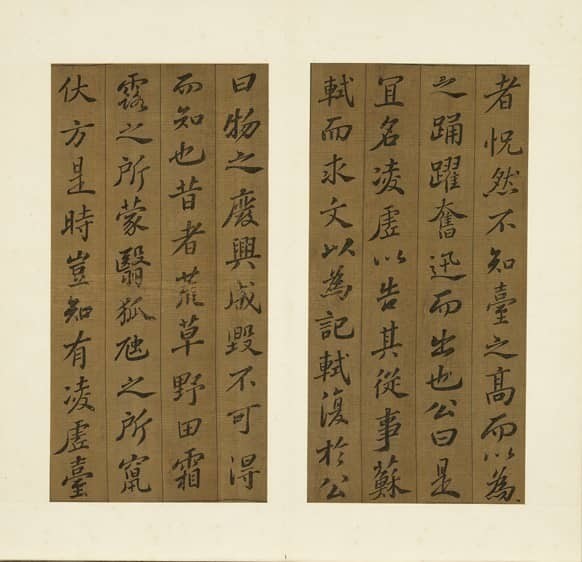 者怳然不知臺之高而以為
之踊躍奮迅而出也公曰是
宜名凌虛以告其從事蘇
軾而求文以為記軾復於公
曰物之廢興成毀不可得
而知也昔者荒草野田霜
露之所蒙翳狐虺之所竄
伏方是時豈知有凌虛臺